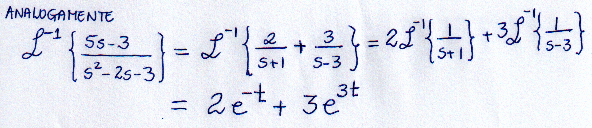 ANALOGAMENTE
ℒ⁻¹{(5s-3)/(s²-2s-3)} = ℒ⁻¹{2/(s+1) + 3/(s-3)} = 2ℒ⁻¹{1/(s+1)} + 3ℒ⁻¹{1/(s-3)}
= 2e⁻ᵗ + 3e³ᵗ